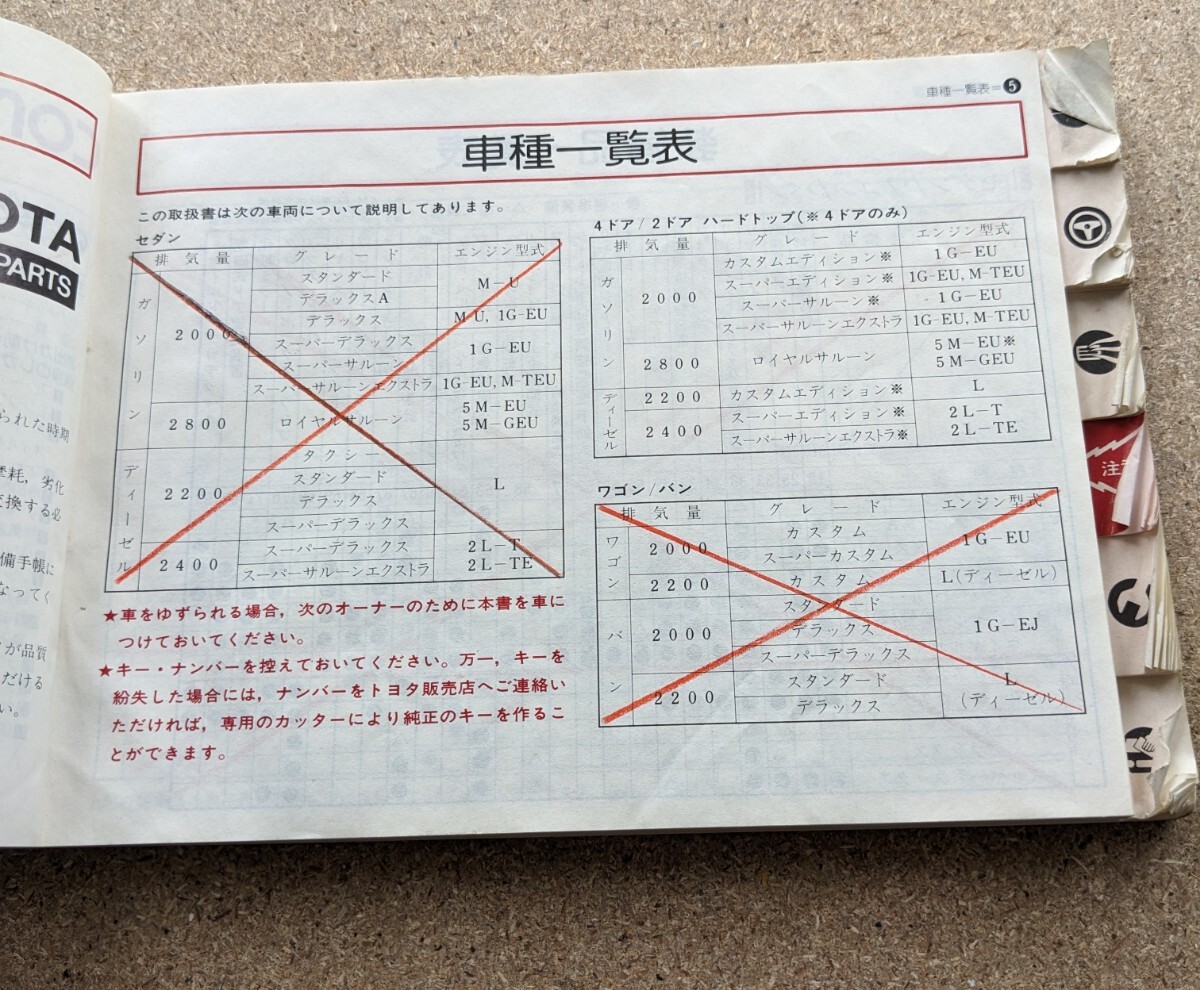 車種一覧表＝❺
車種一覧表
この取扱書は次の車両について説明してあります。
セダン
排気量 グレード エンジン型式
ガソリン 2000 スタンダード M-U
デラックスA
デラックス M-U, 1G-EU
スーパーデラックス 1G-EU
スーパーサルーン
スーパーサルーンエクストラ 1G-EU, M-TEU
2800 ロイヤルサルーン 5M-EU
5M-GEU
ディーゼル 2200 タクシー L
スタンダード
デラックス
スーパーデラックス
2400 スーパーデラックス 2L-T
スーパーサルーンエクストラ 2L-TE
★車をゆずられる場合，次のオーナーのために本書を車に
つけておいてください。
★キー・ナンバーを控えておいてください。万一，キーを
紛失した場合には，ナンバーをトヨタ販売店へご連絡い
ただければ，専用のカッターにより純正のキーを作るこ
とができます。
4ドア/2ドア ハードトップ(※4ドアのみ)
排気量 グレード エンジン型式
ガソリン 2000 カスタムエディション※ 1G-EU
スーパーエディション※ 1G-EU, M-TEU
スーパーサルーン※ 1G-EU
スーパーサルーンエクストラ 1G-EU, M-TEU
2800 ロイヤルサルーン 5M-EU※
5M-GEU
ディーゼル 2200 カスタムエディション※ L
2400 スーパーエディション※ 2L-T
スーパーサルーンエクストラ※ 2L-TE
ワゴン/バン
排気量 グレード エンジン型式
ワゴン 2000 カスタム 1G-EU
スーパーカスタム
2200 カスタム L(ディーゼル)
バン 2000 スタンダード 1G-EJ
デラックス
スーパーデラックス
2200 スタンダード L
デラックス (ディーゼル)
OTA
PARTS
られた時期
摩耗，劣化
交換する必
備手帳に
なってく
が品質
だける
い。